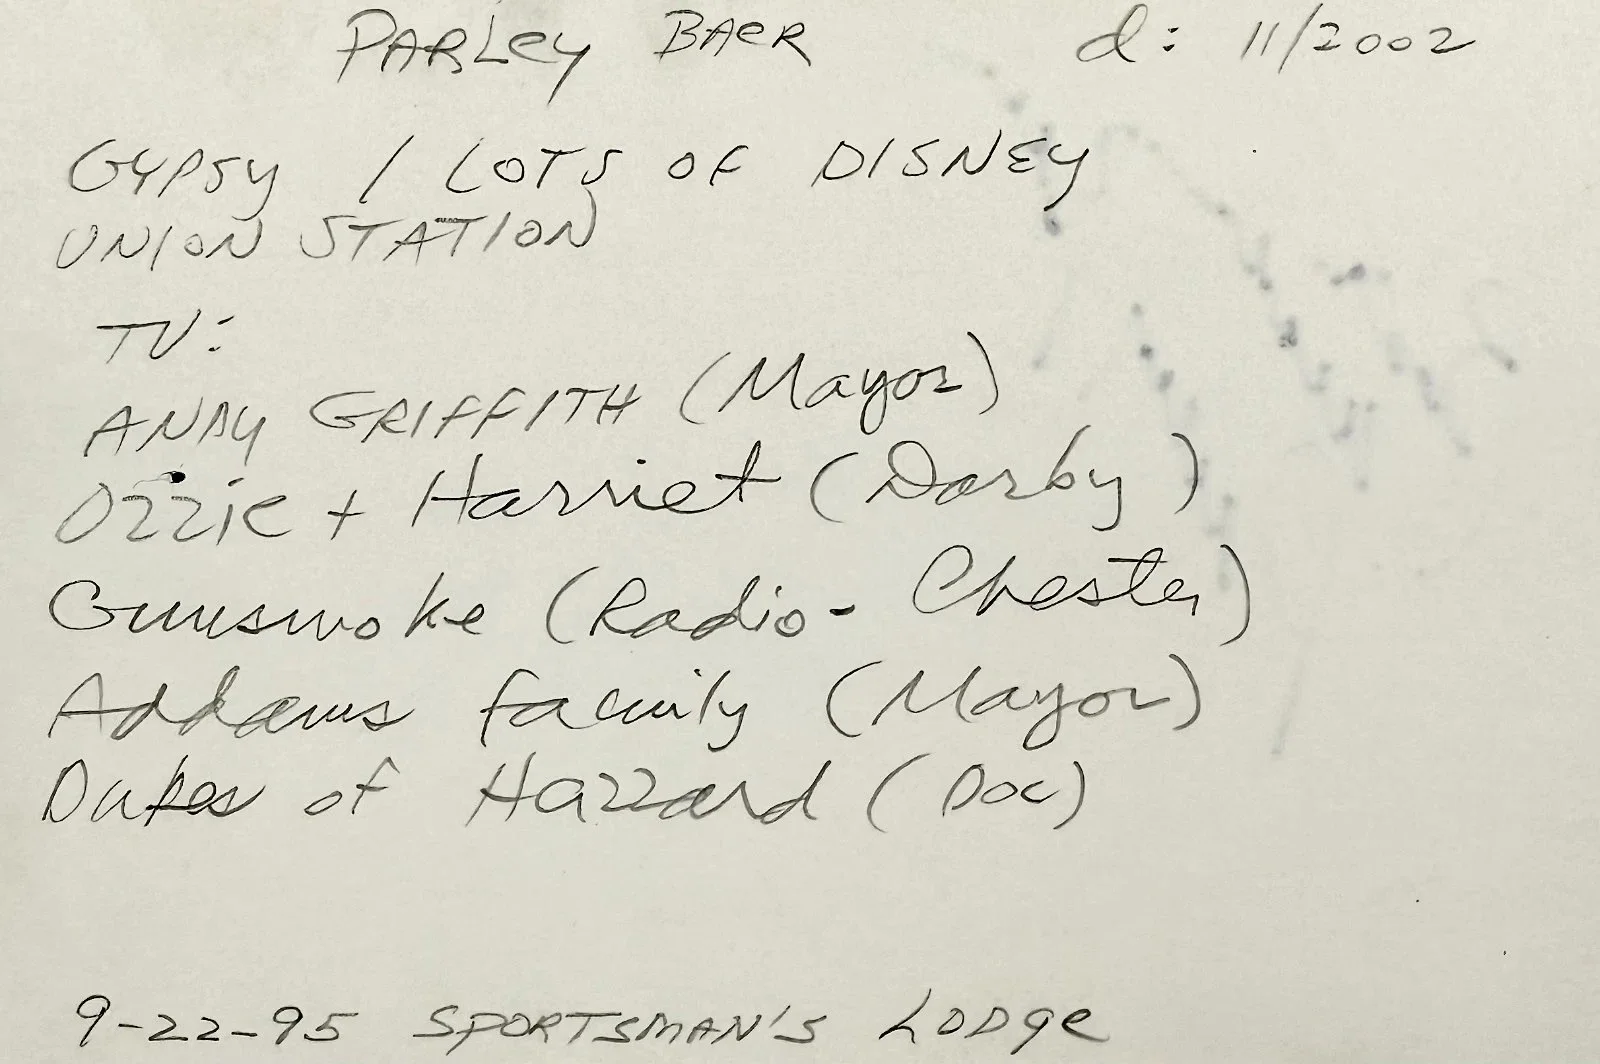 PARLey BAER d: 11/2002
GYPSY / LOTS OF DISNEY
UNION STATION
TV:
ANDY GRIFFITH (Mayor)
Ozzie + Harriet (Darby)
Gunsmoke (Radio- Chester)
Addams Family (Mayor)
Dukes of Hazzard (Doc)
9-22-95 SPORTSMAN'S LODge